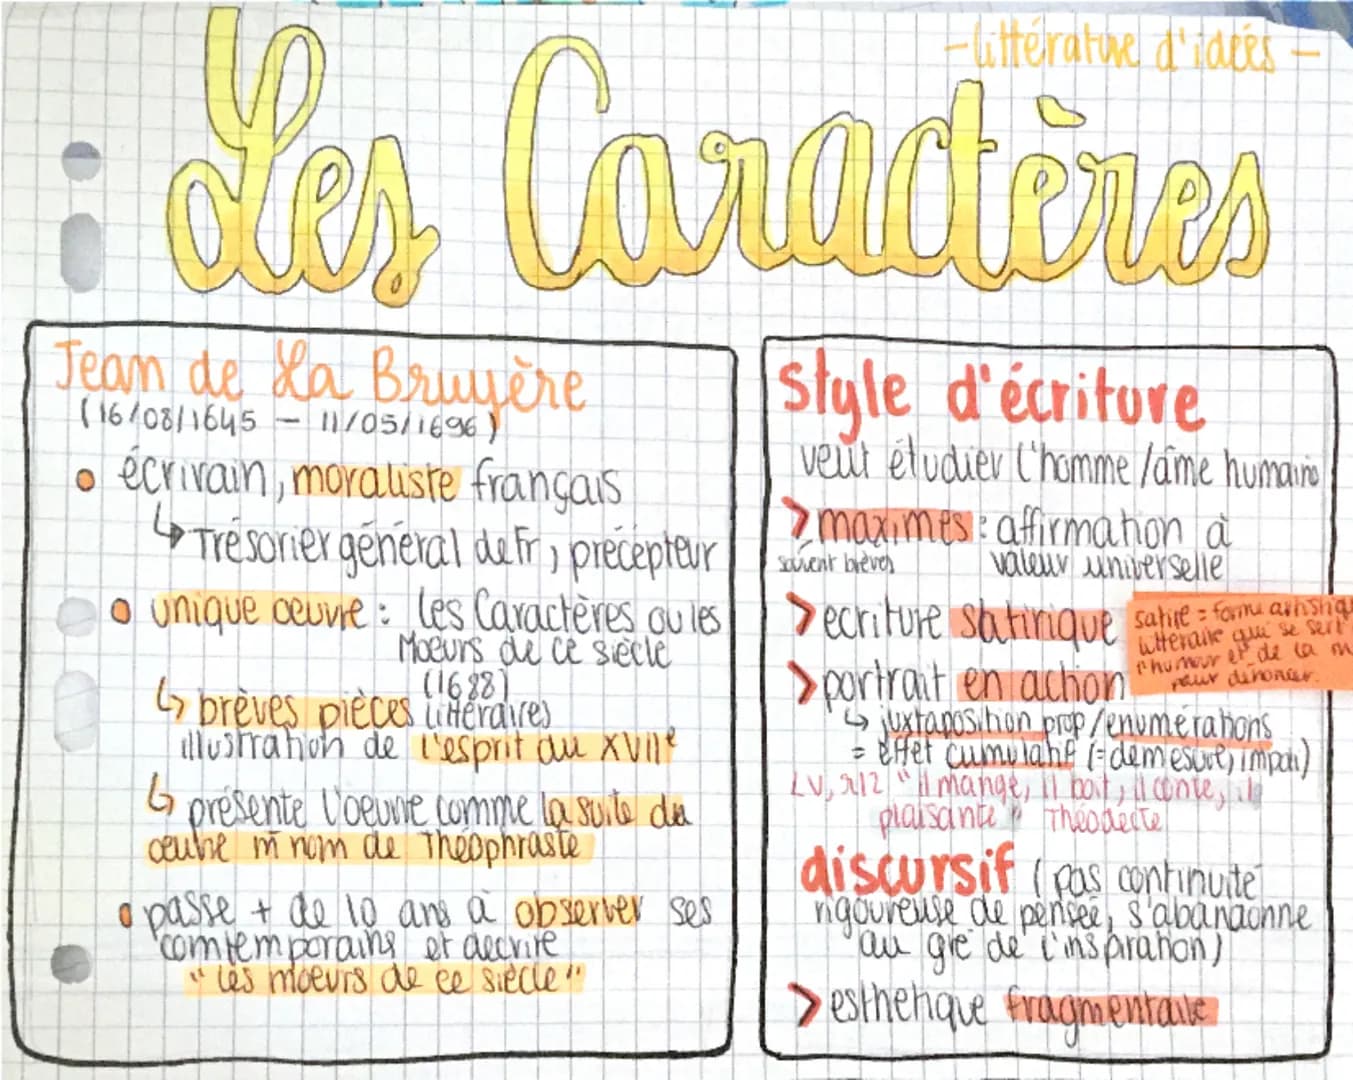 - littérature d'idées -
Les Caractères
Jean de La Bruyère
(16/08/1645 - 11/05/1696)
• écrivain, moraliste français
↳ Trésorier général de Fr, précepteur
• unique œuvre : Les Caractères ou les
Moeurs de ce siècle
(1688)
↳ brèves pièces littéraires
illustration de l'esprit du XVIIe
↳ présente l'oeuvre comme la suite du
œuvre m̂ nom de Théophraste
• passe + de 10 ans à observer ses
comtemporains et décrire
"les moeurs de ce siècle"
Style d'écriture
veut étudier l'homme / âme humaine
> maximes : affirmation à
souvent brèves valeur universelle
> ecriture satirique
satire = forme artistique
littéraire qui se sert
l'humour et de la m
pour dénoncer.
> portrait en action
↳ juxtaposition prop/enumérations
= effet cumulatif (= demesure, impoli)
LV, r12 "il mange, il boit, il conte, il
plaisante" Théodecte
discursif (pas continuité
rigoureuse de pensée, s'abandonne
au gré de l'inspiration)
> esthétique fragmentaire